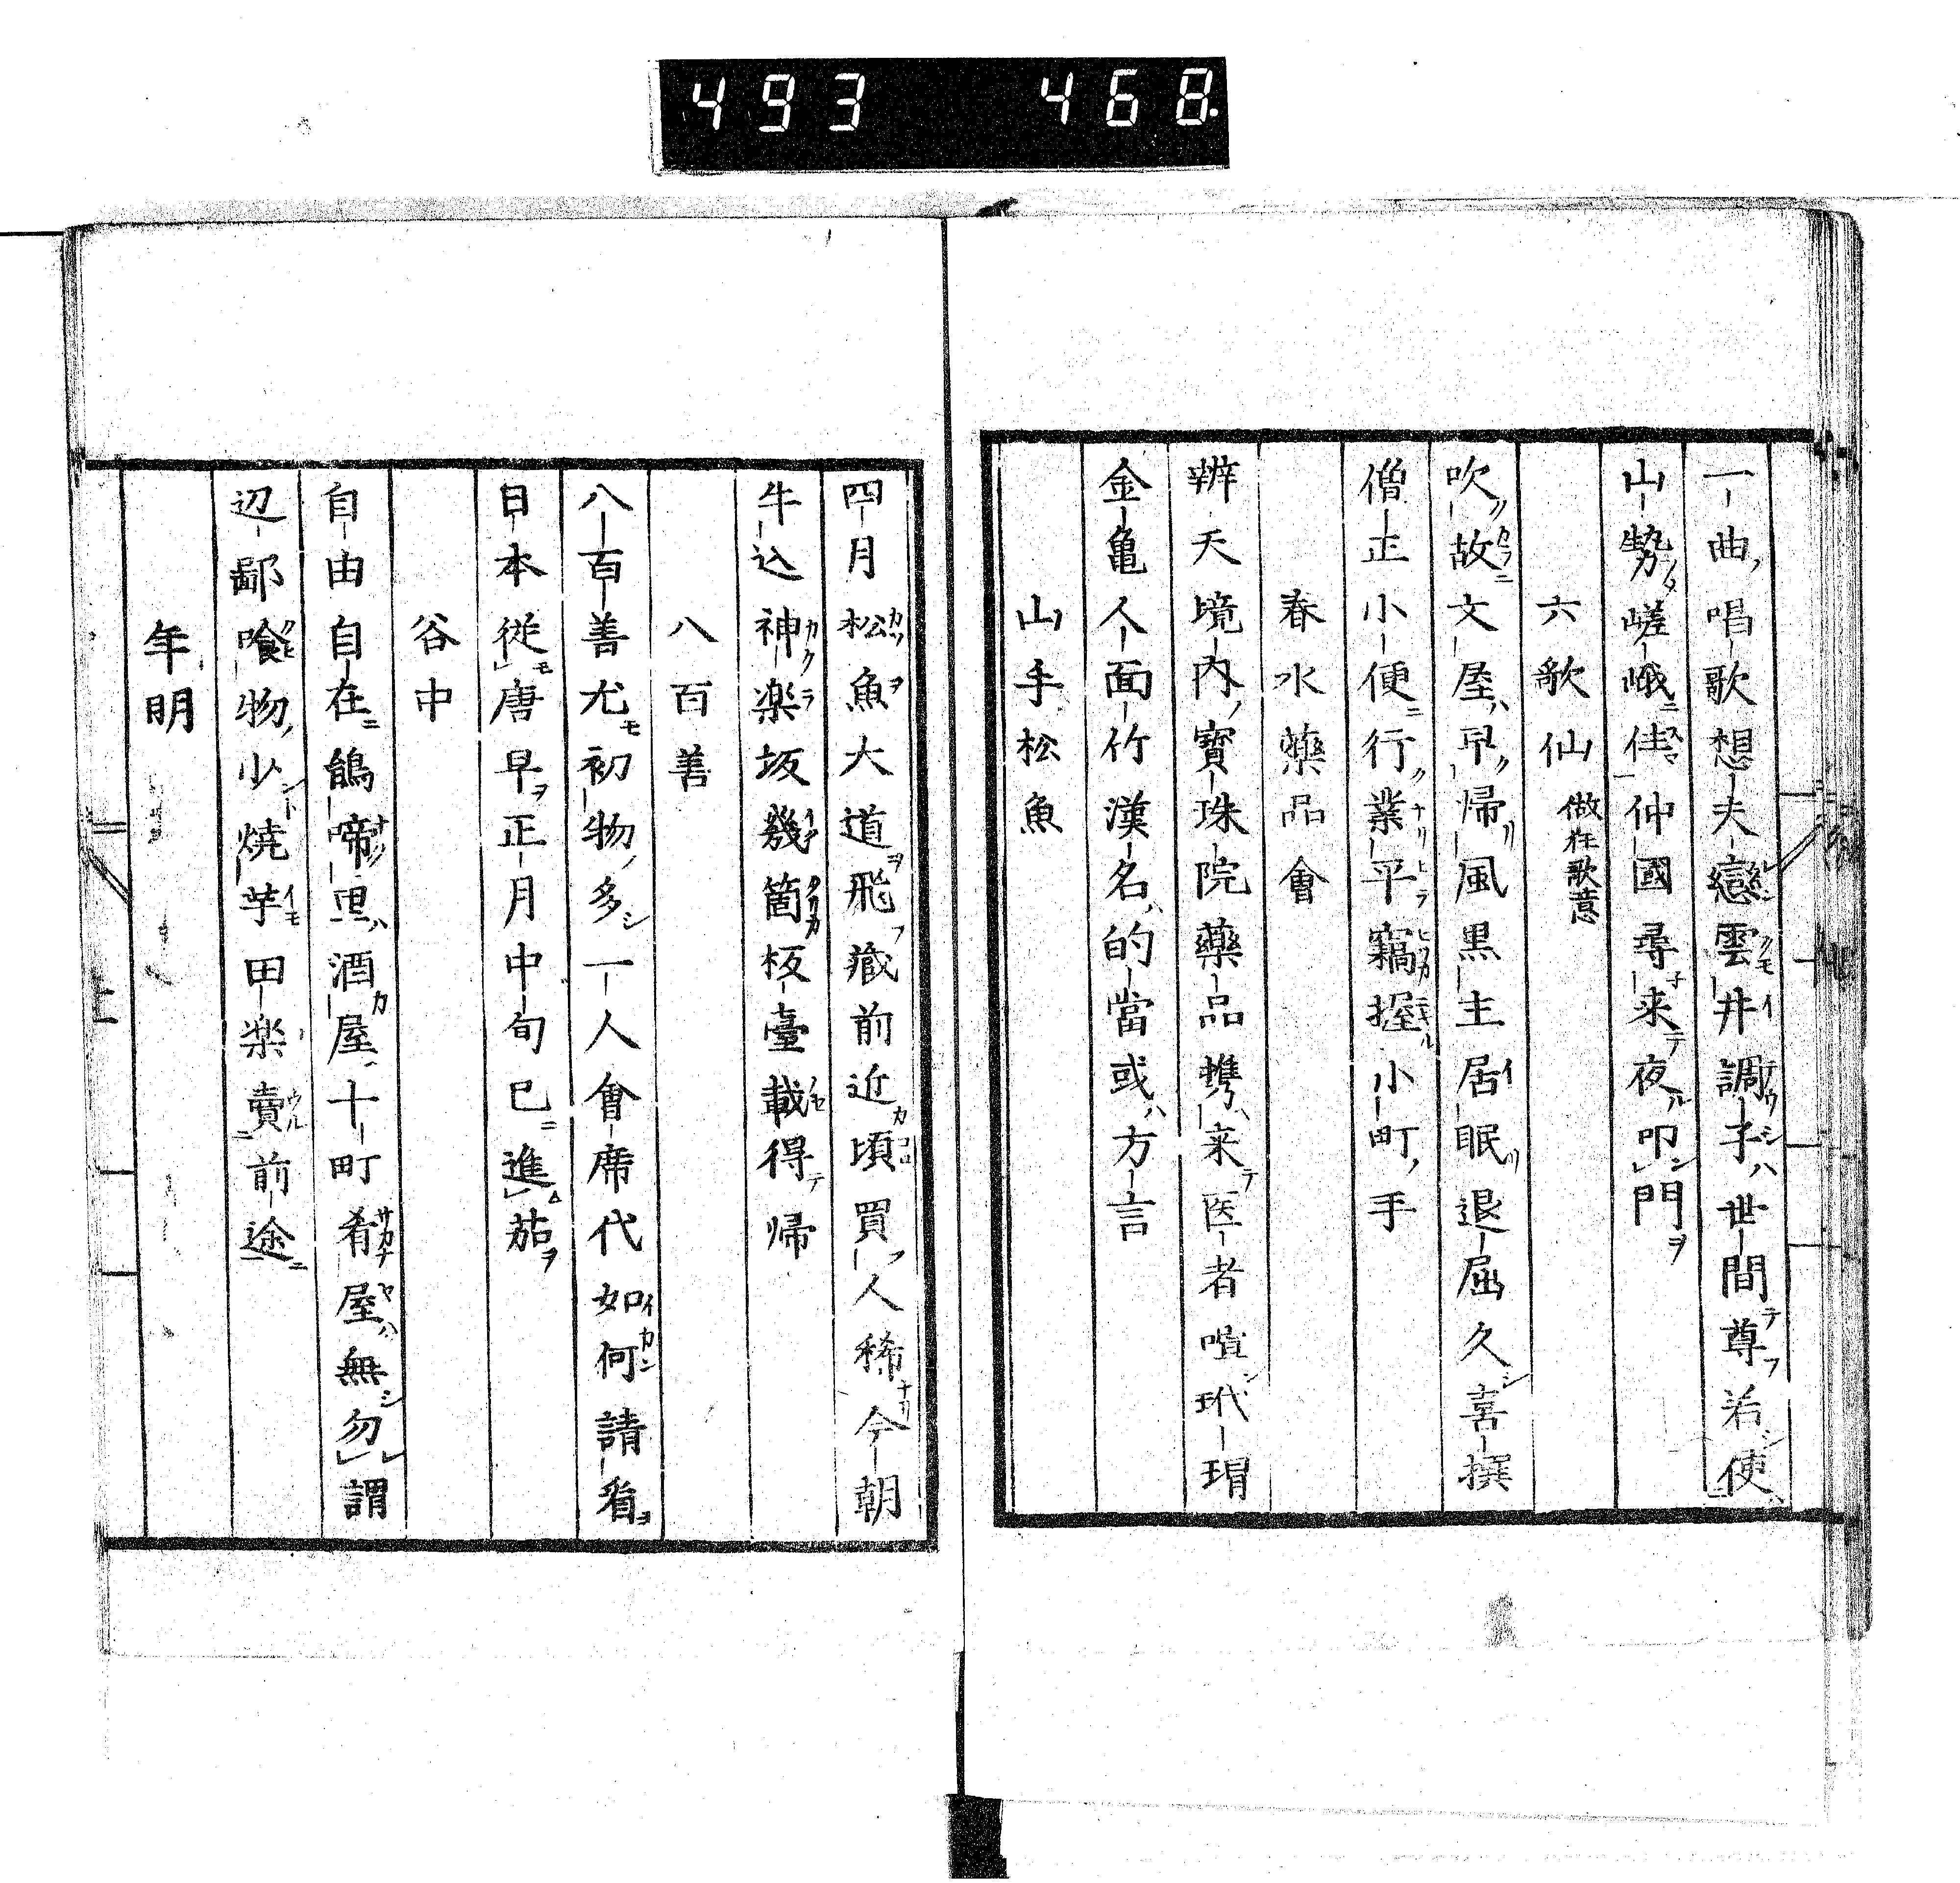 493 468
一曲唱歌想夫戀雲井調子世間尊若使
山勢嵯峨佳仲國尋来夜叩門
六歌仙 倣狂歌意
吹故文屋早帰風黒主居眠退屈久喜撰
僧正小便行業平竊握小町手
春水藥品會
辨天境内寳珠院藥品携来医者喧玳瑁
金亀人面竹漢名的當或方言
山手松魚
四月松魚大道飛藏前近頃買人稀今朝
牛込神楽坂幾箇板臺載得帰
八百善
八百善尤初物多一人會席代如何請看
日本従唐早正月中旬已進茄
谷中
自由自在鶴啼里酒屋十町肴屋無勿謂
辺鄙喰物少焼芋田楽賣前途
年明